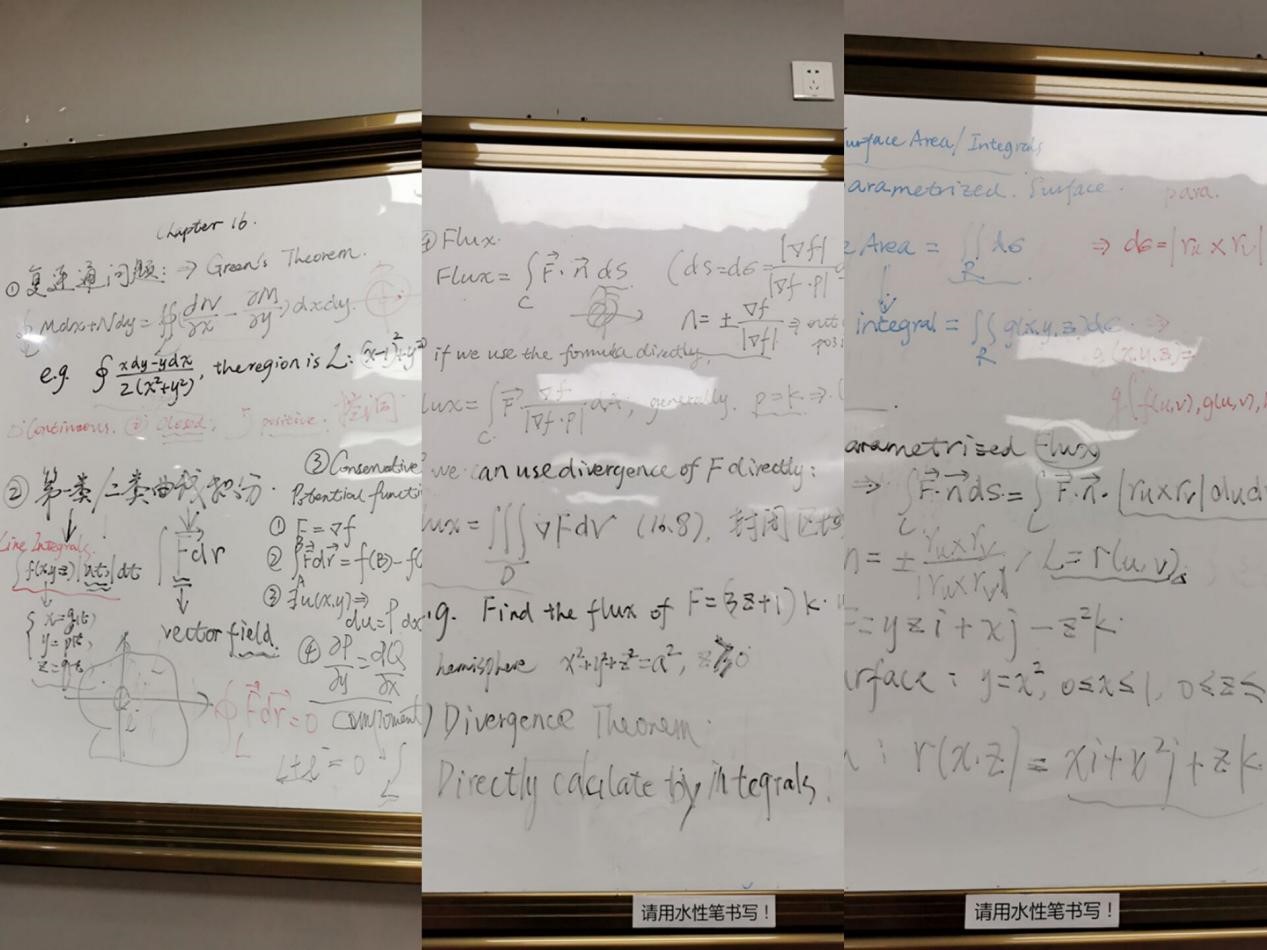 Chapter 16.
① 复连通问题: ⇒ Green's Theorem.
∮ Mdx+Ndy = ∯(∂N/∂x − ∂M/∂y)dxdy.
e.g. ∮ (xdy−ydx)/(2(x²+y²)), the region is L: (x−1)²+y²
① Continuous. ② closed, positive.
② 第一类/二类曲线积分.
Line Integrals.
∫ f(x,y,z) dt
∫ F⃗dr
{ x=g(t),
y=p(t),
z=q(t)
vector field.
③ Conservative
Potential functi
① F = ∇f
② ∫F⃗dr⃗ = f(B)−f(
③ ∃u(x,y) ⇒
du = P dx
④ ∂P/∂y = ∂Q/∂x
component
∮ F⃗dr⃗ = 0
L
④ Flux.
Flux = ∫ F⃗·n⃗ ds (ds=dσ= |∇f|/|∇f·p|
C
n = ± ∇f/|∇f| ⇒
if we use the formula directly,
lux = ∫ F⃗ ∇f/|∇f·p| dA, generally. p=k ⇒
C
we can use divergence of F directly:
lux = ∭ ∇FdV (16.8), 封闭区域
D
.g. Find the flux of F=(3z+1)k.
hemisphere x²+y²+z²=a², z⩾0
) Divergence Theorem.
Directly calclate by integrals.
urface Area/Integrals
arametrized. Surface. para.
Area = ∬ dσ ⇒ dσ=|ru×rv|
R
integral = ∬ g(x,y,z)dσ ⇒
R
g(x,y,z)=
g(f(u,v),g(u,v),
arametrized Flux
⇒ ∫ F⃗·n⃗ds = ∫ F⃗·n⃗·|ru×rv|dudv
n = ± ru×rv/|ru×rv|, L=r(u,v).
F=yzi+xj−z²k.
urface: y=x², 0≤x≤1, 0≤z≤
: r(x,z) = xi+x²j+zk.
请用水性笔书写！
请用水性笔书写！